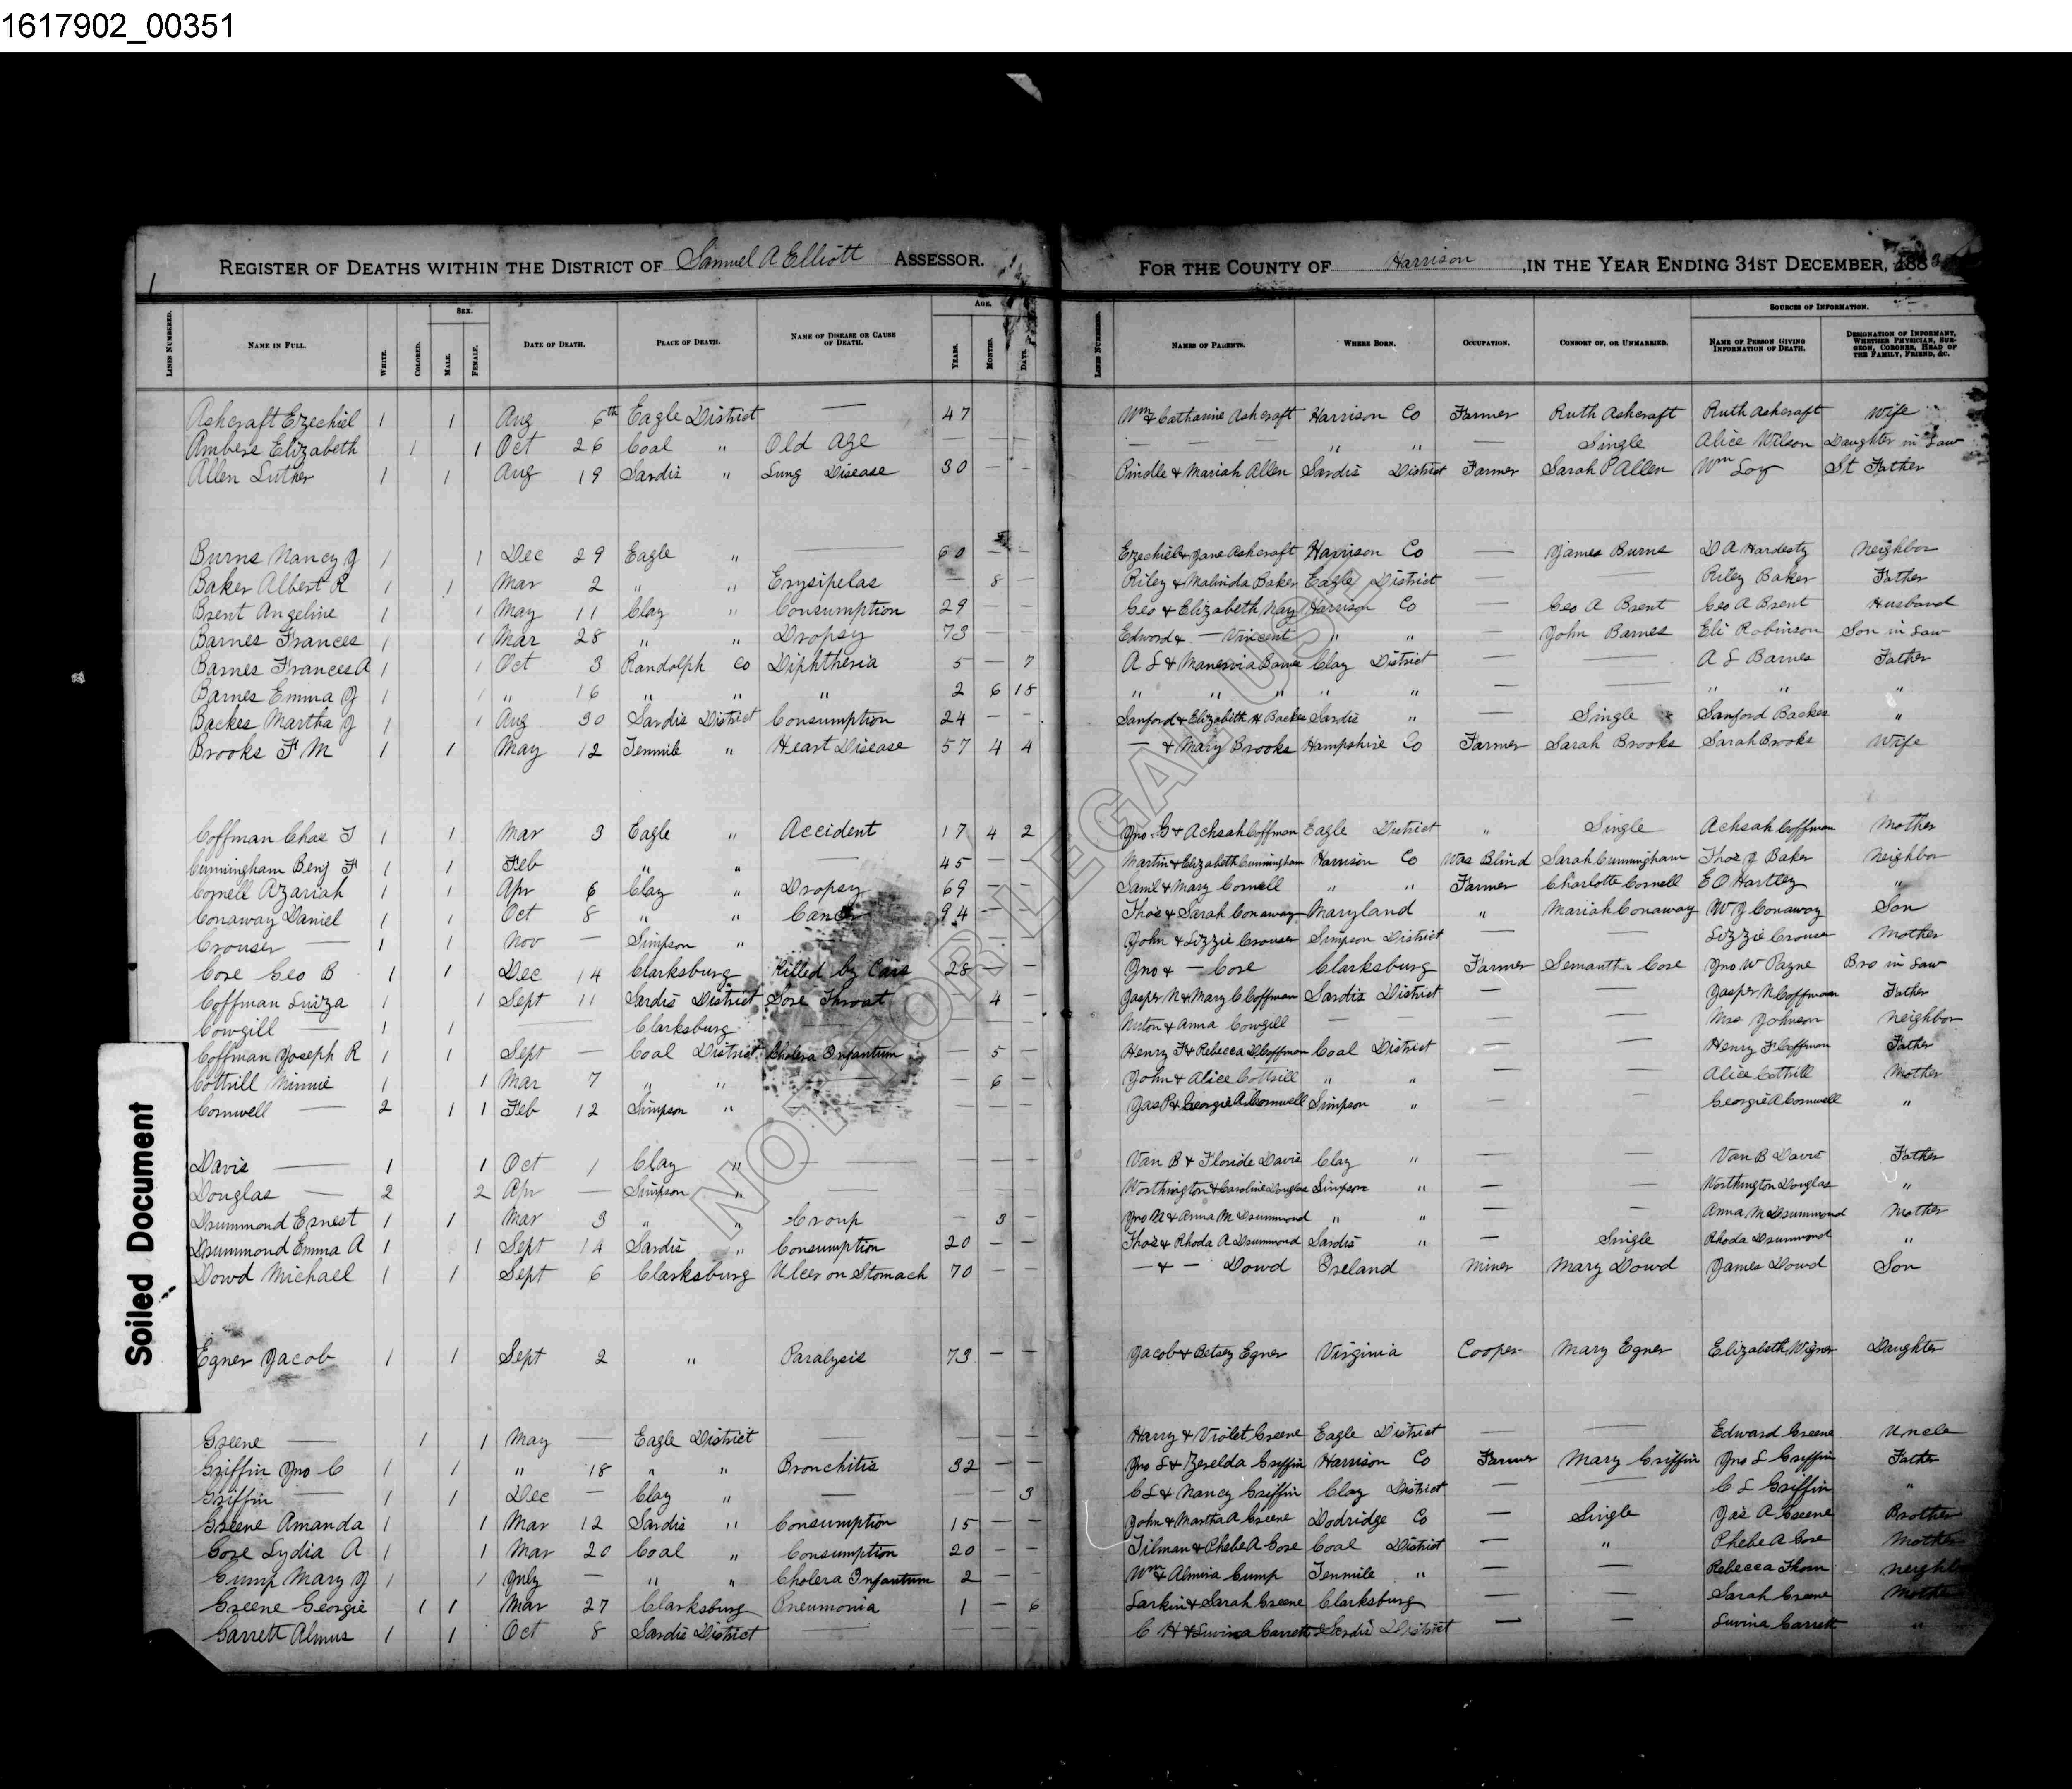 1617902_00351
1
REGISTER OF DEATHS WITHIN THE DISTRICT OF Samuel A Elliott ASSESSOR. FOR THE COUNTY OF Harrison, IN THE YEAR ENDING 31ST DECEMBER, 188
LINES NUMBERED. NAME IN FULL. WHITE. COLORED. SEX. MALE. FEMALE. DATE OF DEATH. PLACE OF DEATH. NAME OF DISEASE OR CAUSE OF DEATH. AGE. YEARS. MONTHS. DAYS. LINES NUMBERED. NAMES OF PARENTS. WHERE BORN. OCCUPATION. CONSORT OF, OR UNMARRIED. SOURCES OF INFORMATION. NAME OF PERSON GIVING INFORMATION OF DEATH. DESIGNATION OF INFORMANT, WHETHER PHYSICIAN, SURGEON, CORONER, HEAD OF THE FAMILY, FRIEND, &C.
Ashcraft Ezechiel 1 1 Aug 6th Eagle District — 47 Wm & Catharine Ashcraft Harrison Co Farmer Ruth Ashcraft Ruth Ashcraft Wife
Ambers Elizabeth 1 1 Oct 26 Coal " Old Age — — — — — — " " — Single Alice Wilson Daughter in Law
Allen Luther 1 1 Aug 19 Sardis " Lung Disease 30 — — Pindle & Mariah Allen Sardis District Farmer Sarah P Allen Wm Loy St Father
Burns Nancy J 1 1 Dec 29 Eagle " 60 — — Ezechiel & Jane Ashcraft Harrison Co — James Burns D A Hardesty Neighbor
Baker Albert R 1 1 Mar 2 " " Erysipelas — 8 — Riley & Malinda Baker Eagle District — — Riley Baker Father
Brent Angeline 1 1 May 11 Clay " Consumption 29 — — Geo & Elizabeth Nay Harrison Co — Geo A Brent Geo A Brent Husband
Barnes Frances 1 1 Mar 28 " " Dropsy 73 — — Edward & — Vincent " " — John Barnes Eli Robinson Son in Law
Barnes Frances A 1 1 Oct 3 Randolph Co Diphtheria 5 — 7 A L & Manervia Barnes Clay District — — A L Barnes Father
Barnes Emma J 1 1 " 16 " " " 2 6 18 " " " " " — — " " "
Backes Martha J 1 1 Aug 30 Sardis District Consumption 24 — — Sanford & Elizabeth H Backes Sardis " — Single Sanford Backes "
Brooks F M 1 1 May 12 Tenmile " Heart Disease 57 4 4 — & Mary Brooks Hampshire Co Farmer Sarah Brooks Sarah Brooks Wife
Coffman Chas T 1 1 Mar 3 Eagle " Accident 17 4 2 Jno G & Achsah Coffman Eagle District " Single Achsah Coffman Mother
Cunningham Benj F 1 1 Feb " " — 45 — — Martin & Elizabeth Cunningham Harrison Co Was Blind Sarah Cunningham Thos J Baker Neighbor
Cornell Azariah 1 1 Apr 6 Clay " Dropsy 69 — — Saml & Mary Cornell " " Farmer Charlotte Cornell E O Hartley "
Conaway Daniel 1 1 Oct 8 " " Cancer 94 — — Thos & Sarah Conaway Maryland " Mariah Conaway W J Conaway Son
Crouser — 1 1 Nov — Simpson " — — John & Lizzie Crouser Simpson District — — Lizzie Crouser Mother
Core Geo B 1 1 Dec 14 Clarksburg Killed by Cars 28 — — Jno & — Core Clarksburg Farmer Semantha Core Jno W Payne Bro in Law
Coffman Luiza 1 1 Sept 11 Sardis District Sore Throat — 4 — Jasper N & Mary C Coffman Sardis District — — Jasper N Coffman Father
Cowgill — 1 1 — Clarksburg — — — Nuton & Anna Cowgill — — — — Mrs Johnson Neighbor
Coffman Joseph R 1 1 Sept — Coal District Cholera Infantum — 5 — Henry F & Rebecca D Coffman Coal District — — Henry F Coffman Father
Cottrill Minnie 1 1 Mar 7 " " — — 6 — John & Alice Cottrill " " — — Alice Cottrill Mother
Cornwell — 2 1 1 Feb 12 Simpson " — — — Jas P & Georgie A Cornwell Simpson " — — Georgie A Cornwell "
Davis — 1 1 Oct 1 Clay " — — — — Van B & Floride Davis Clay " — — Van B Davis Father
Douglas — 2 2 Apr — Simpson " — — — — Worthington & Caroline Douglas Simpson " — — Worthington Douglas "
Drummond Ernest 1 1 Mar 3 " " Croup — 3 — Jno N & Anna M Drummond " " — — Anna M Drummond Mother
Drummond Emma A 1 1 Sept 14 Sardis " Consumption 20 — — Thos & Rhoda A Drummond Sardis " — Single Rhoda Drummond "
Dowd Michael 1 1 Sept 6 Clarksburg Ulcer on Stomach 70 — — — & — Dowd Ireland Miner Mary Dowd James Dowd Son
Egner Jacob 1 1 Sept 2 " Paralysis 73 — — Jacob & Betsey Egner Virginia Cooper Mary Egner Elizabeth Daughter
Greene — 1 1 May — Eagle District — — — — Harry & Violet Greene Eagle District — — Edward Greene Uncle
Griffin Jno C 1 1 " 18 " " Bronchitis 32 — — Jno L & Zerelda Griffin Harrison Co Farmer Mary Griffin Jno L Griffin Father
Griffin — 1 1 Dec — Clay " — — — 3 C L & Nancy Griffin Clay District — — C L Griffin "
Greene Amanda 1 1 Mar 12 Sardis " Consumption 15 — — John & Martha A Greene Dodridge Co — Single Jas A Greene Brother
Gore Lydia A 1 1 Mar 20 Coal " Consumption 20 — — Tilman & Phebe A Gore Coal District — " Phebe A Gore Mother
Gump Mary J 1 1 July — " " Cholera Infantum 2 — — Wm & Almira Gump Tenmile " — — Rebecca Thorn Neighbor
Greene Georgie 1 1 Mar 27 Clarksburg Pneumonia 1 — 6 Larkin & Sarah Greene Clarksburg — — Sarah Greene Mother
Garrett Almus 1 1 Oct 8 Sardis District — — — — C H & Luvina Garrett Sardis District — — Luvina Garrett "
Soiled Document
NOT FOR LEGAL USE